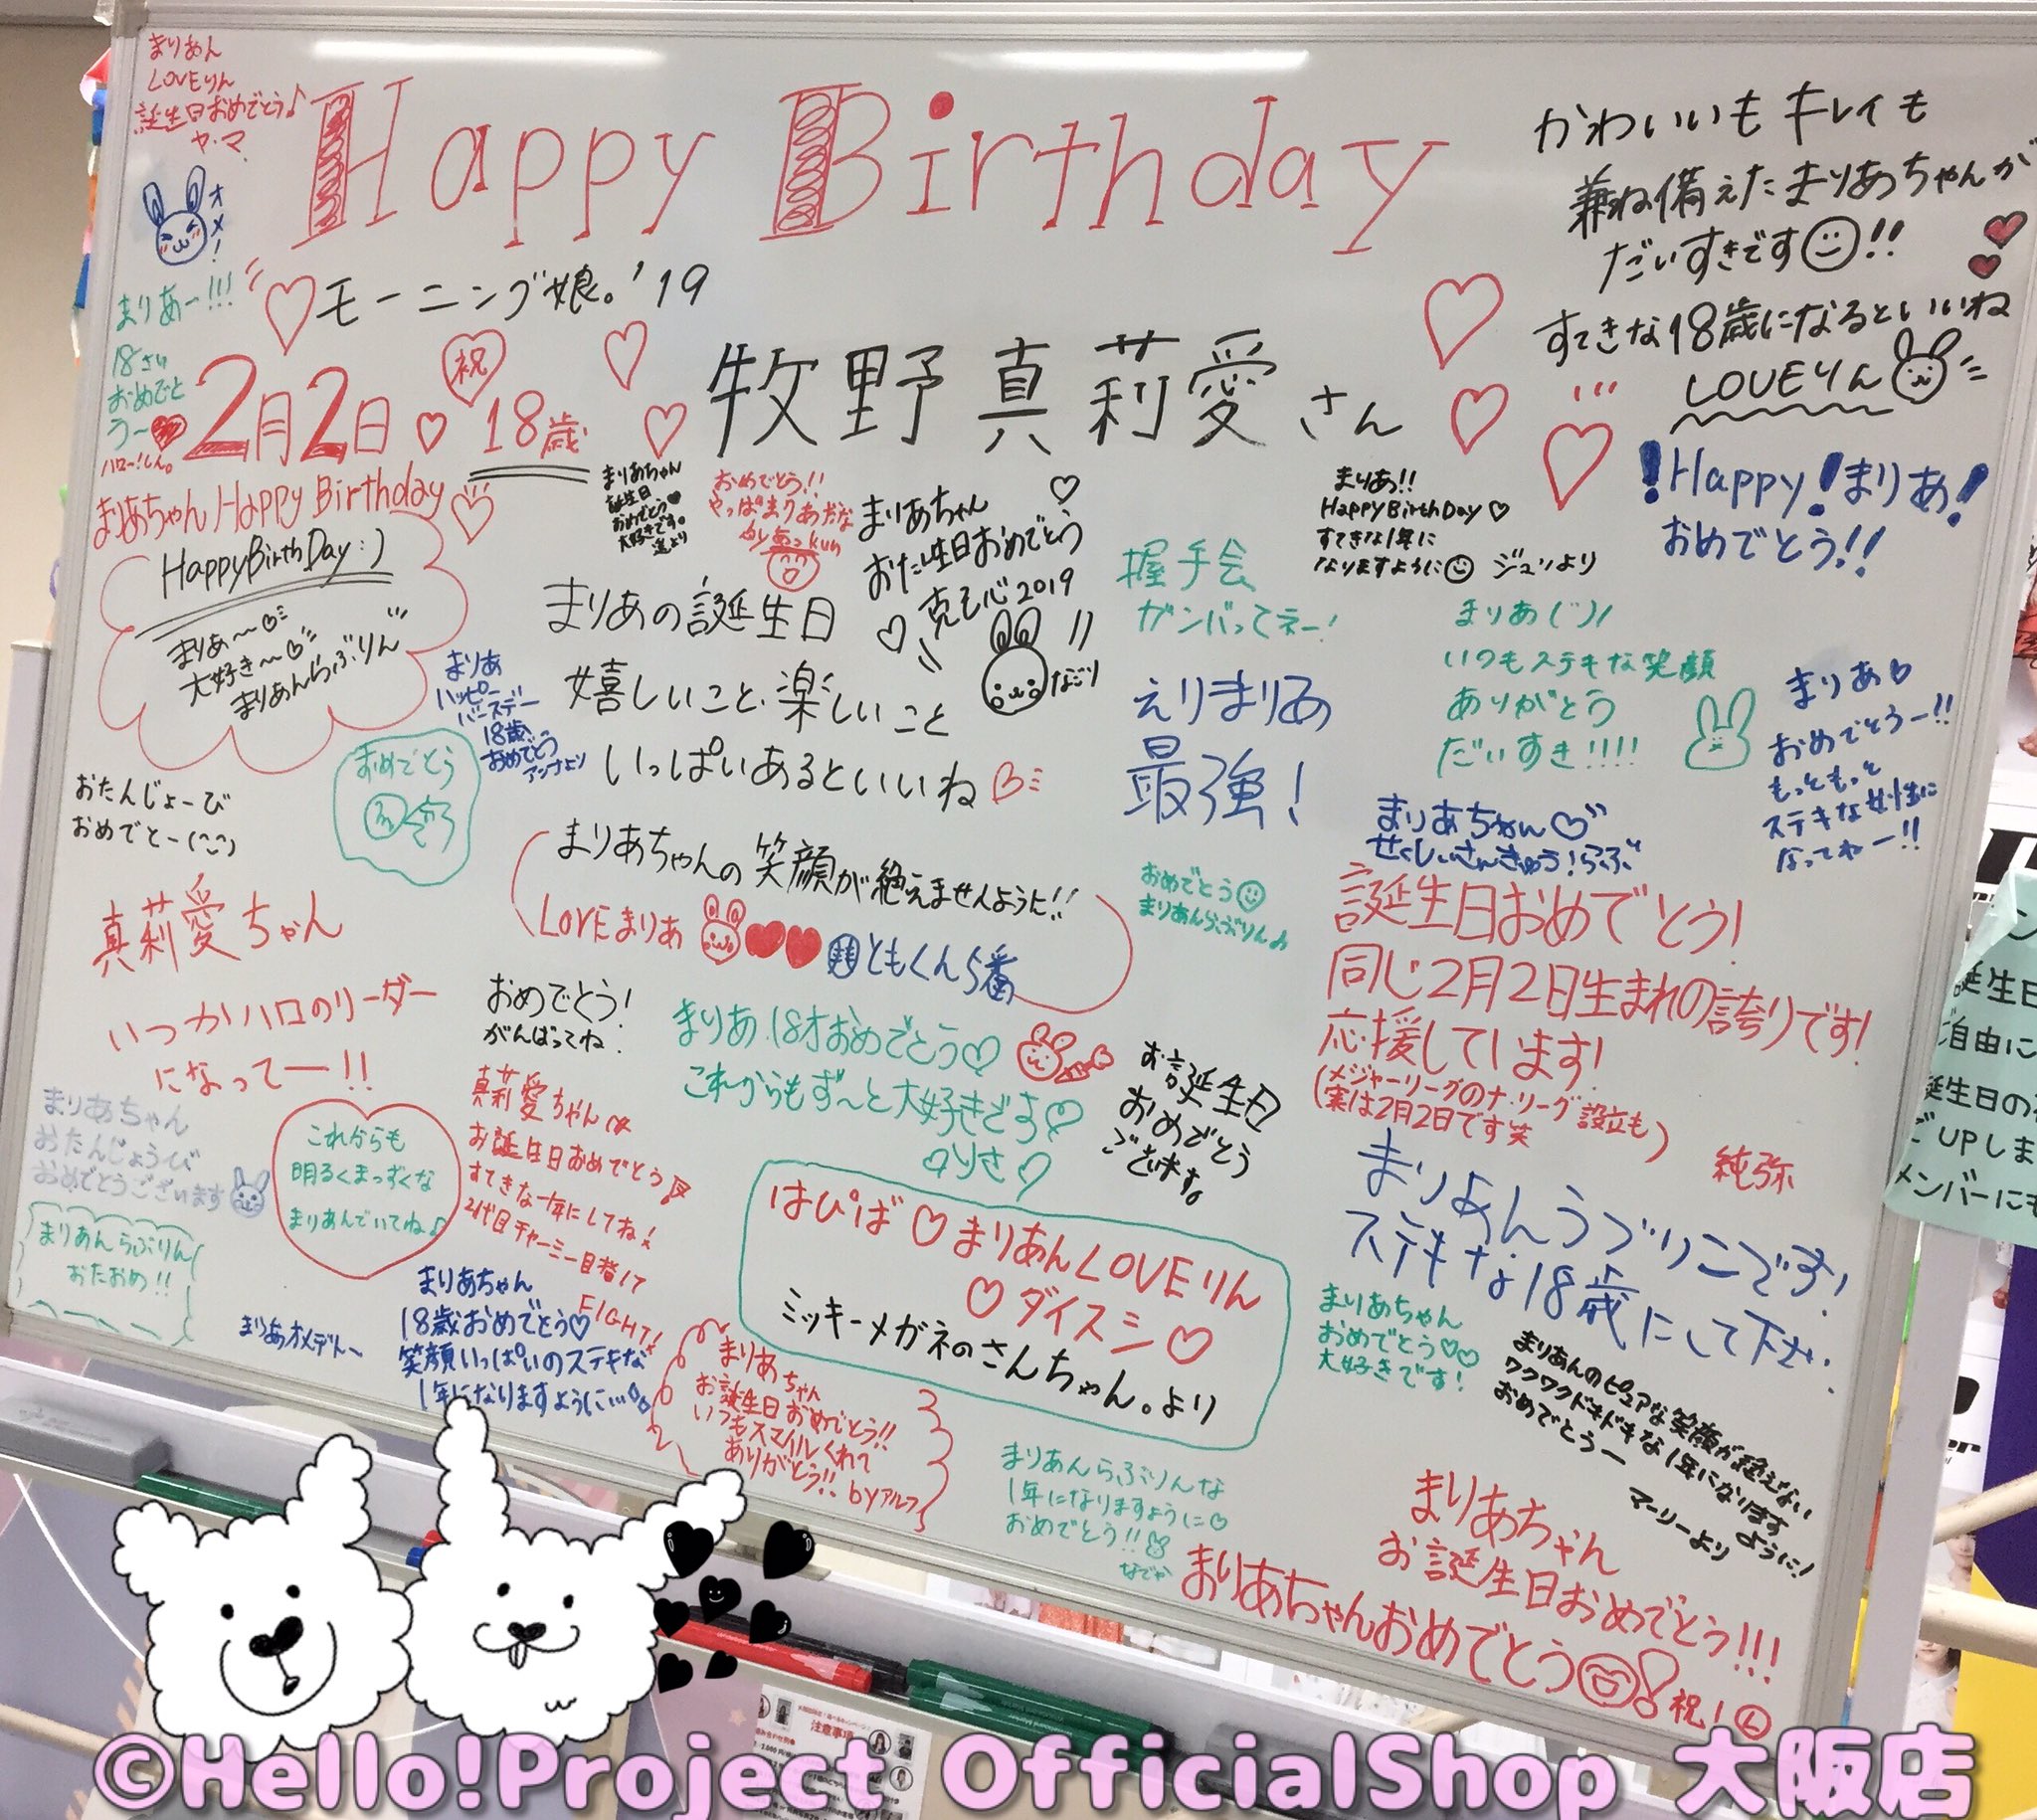 まりあん
LOVEりん
誕生日おめでとう♪
ヤ・マ
オメ!
Happy Birthday
かわいいもキレイも
兼ね備えたまりあちゃんが
だいすきです!!
すてきな18歳になるといいね
LOVEりん
まりあー!!!
18さい
おめでと
う〜
ハロー!しん。
モーニング娘。'19
2月2日
祝
18歳
牧野真莉愛さん
まりあちゃん Happy Birthday
HappyBirthDay:)
まりあ〜
大好き〜
まりあんらぶりん
まりあちゃん
誕生日
おめでとう
大好きです。
おめでとう!!
まりあちゃん
おた生日おめでとう
2019
まりあ!!
HappyBirthDay♡
すてきな1年に
なりますように
ジュンより
!Happy!まりあ!
おめでとう!!
握手会
ガンバってネー!
まりあの誕生日
嬉しいこと、楽しいこと
いっぱいあるといいね
えりまりあ
最強!
まりあ
いつもステキな笑顔
ありがとう
だいすき!!!!
まりあ♡
おめでとうー!!
もっともっと
ステキな女性に
なってねー!!
まりあ
ハッピー
バースデー
18歳
おめでとう
アンナより
おめでとう
おたんじょーび
おめでとー
まりあちゃん♡
せくしぃさんきゅう!らぶ
まりあちゃんの笑顔が絶えませんように!!
LOVEまりあ
ともくん5番
おめでとう
まりあんらぶりん♪
誕生日おめでとう!
同じ2月2日生まれの誇りです!
応援しています!
(メジャーリーグのナ・リーグ設立も
実は2月2日です笑)
純弥
真莉愛ちゃん
いつかハロのリーダー
になってー!!
おめでとう!
がんばってね!
まりあ18才おめでとう♡
これからもず〜と大好きです♡
りさ♡
お誕生日
おめでとう
ございます。
まりあちゃん
おたんじょうび
おめでとうございます
これからも
明るくまっすぐな
まりあんでいてね♪
真莉愛ちゃん
お誕生日おめでとう
すてきな一年にしてね!
2代目チャーミー目指して
FIGHT!
まりあんらぶりん
おたおめ!!
まりあオメデトー
まりあちゃん
18歳おめでとう♡
笑顔いっぱいのステキな
1年になりますように…
はぴば♡まりあんLOVEりん
♡ダイスシ♡
ミッキーメガネのさんちゃん。より
まりあんラブりこです!
ステキな18歳にして下さい
まりあちゃん
おめでとう♡♡
大好きです!
まりあんのピュアな笑顔が絶えない
ワクワクドキドキな1年になりますように!
おめでとうー
マーリーより
まりあちゃん
お誕生日おめでとう!!
いつもスマイルくれて
ありがとう!! byアルフ
まりあんらぶりんな
1年になりますように♡
おめでとう!!
まりあちゃん
お誕生日おめでとう!!!
まりあちゃんおめでとう
祝!
誕生日
ご自由に
誕生日の
UPしま
メンバーにも
注意事項
©Hello!Project OfficialShop 大阪店